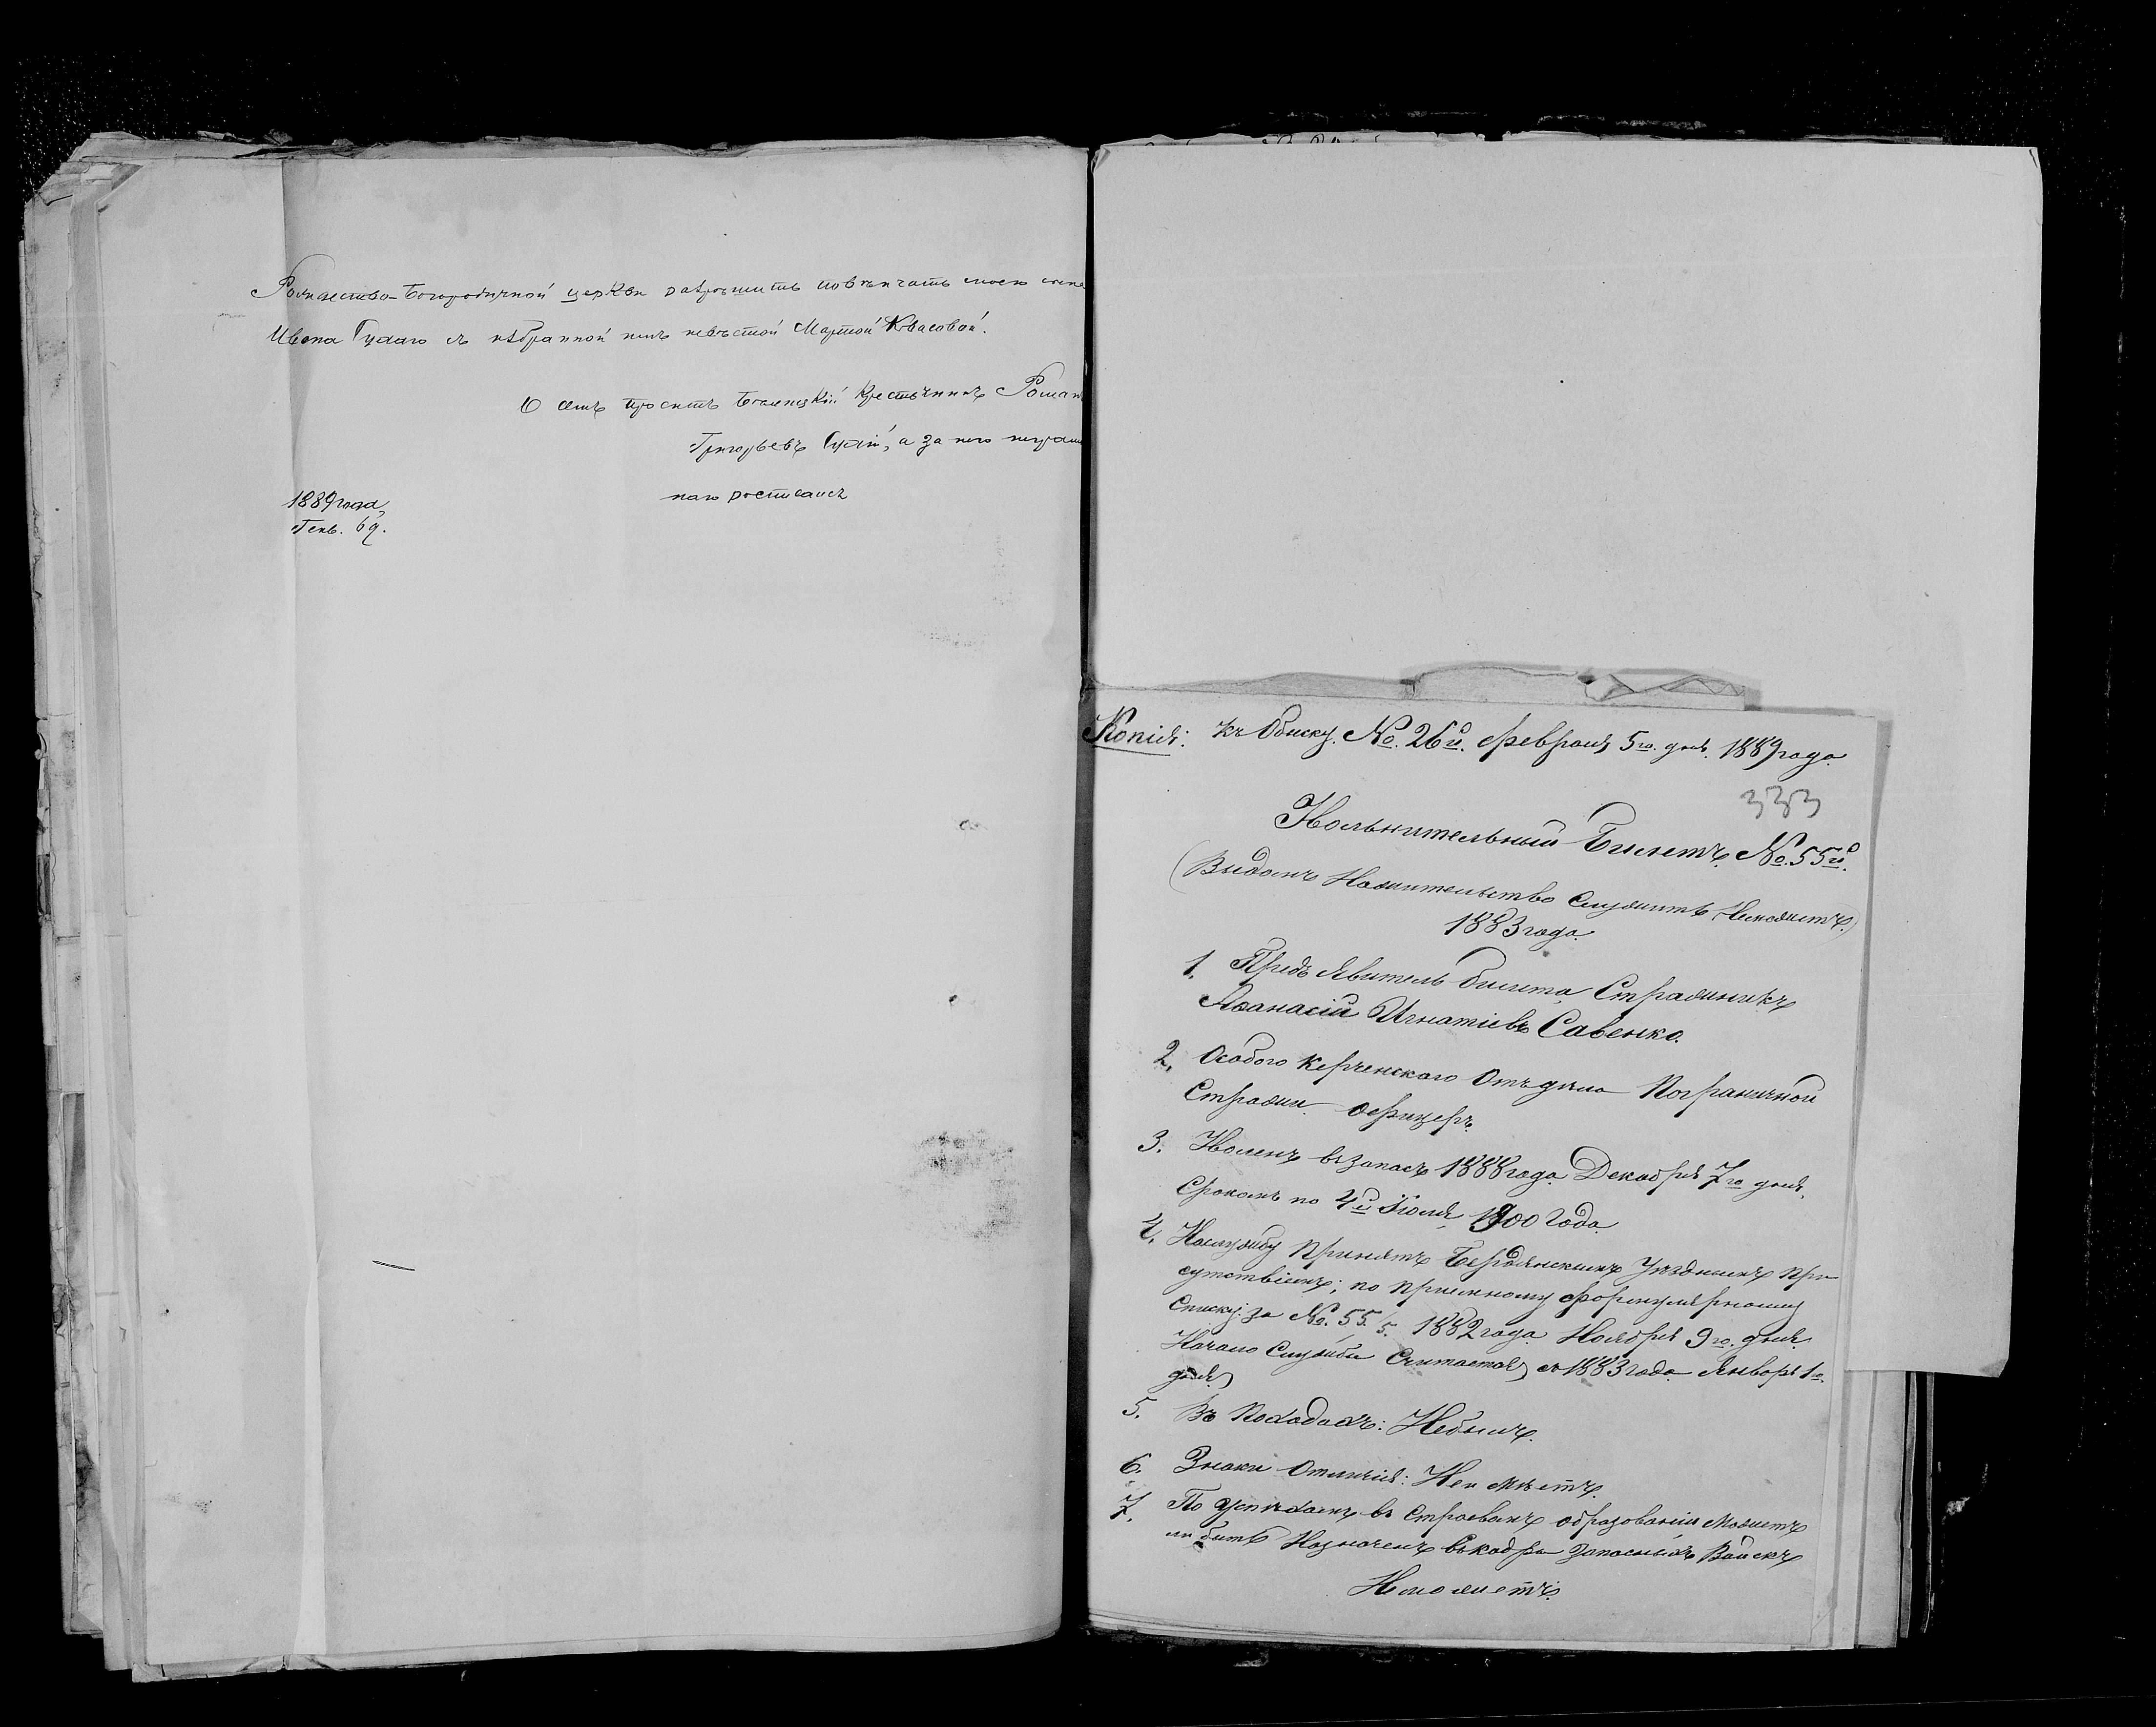 Рождество-Богородичной церкви разрѣшить повѣнчать моего сына
Ивана Гудаго съ избранной имъ невѣстой Марѳой Квасовой.
О семъ проситъ крестьянинъ Роман
Григорьевъ Гудій, а за него неграм
наго росписался
1889 года,
Генв. 6 д.
Копія: къ Обыску № 26й. Февраля 5го. дня. 1889 года.
333
Увольнительный Билетъ, № 55й.
(Виданъ Нажительство Служитъ Неможитъ.)
1883 года.
1. Предъявитель билета, Стражникъ
Афанасій Игнатіевъ Савенко.
2. Особого Керченского Отъдѣла Пограничной
Стражи Офицеръ.
3. Уволенъ взапасъ 1888 года Декабря 7го дня,
Срокомъ по 4й Іюля, 1900 Года.
4. Наслужбу принятъ Бердянскимъ Уѣзднымъ при-
сутствіемъ; по пріемному формулярному
Списку: за № 55/5. 1882 года Ноября 9го. дня.
Начало Службы Считается съ 1883 года Января 1го.
дня.
5. Въ Походахъ: Небылъ.
6. Знаки Отличія: Неимѣетъ.
7. По успѣхамъ въ Строевамъ образованіи Можетъ
ли быть Назначенъ вкадры запасныхъ Войскъ
Неможетъ.